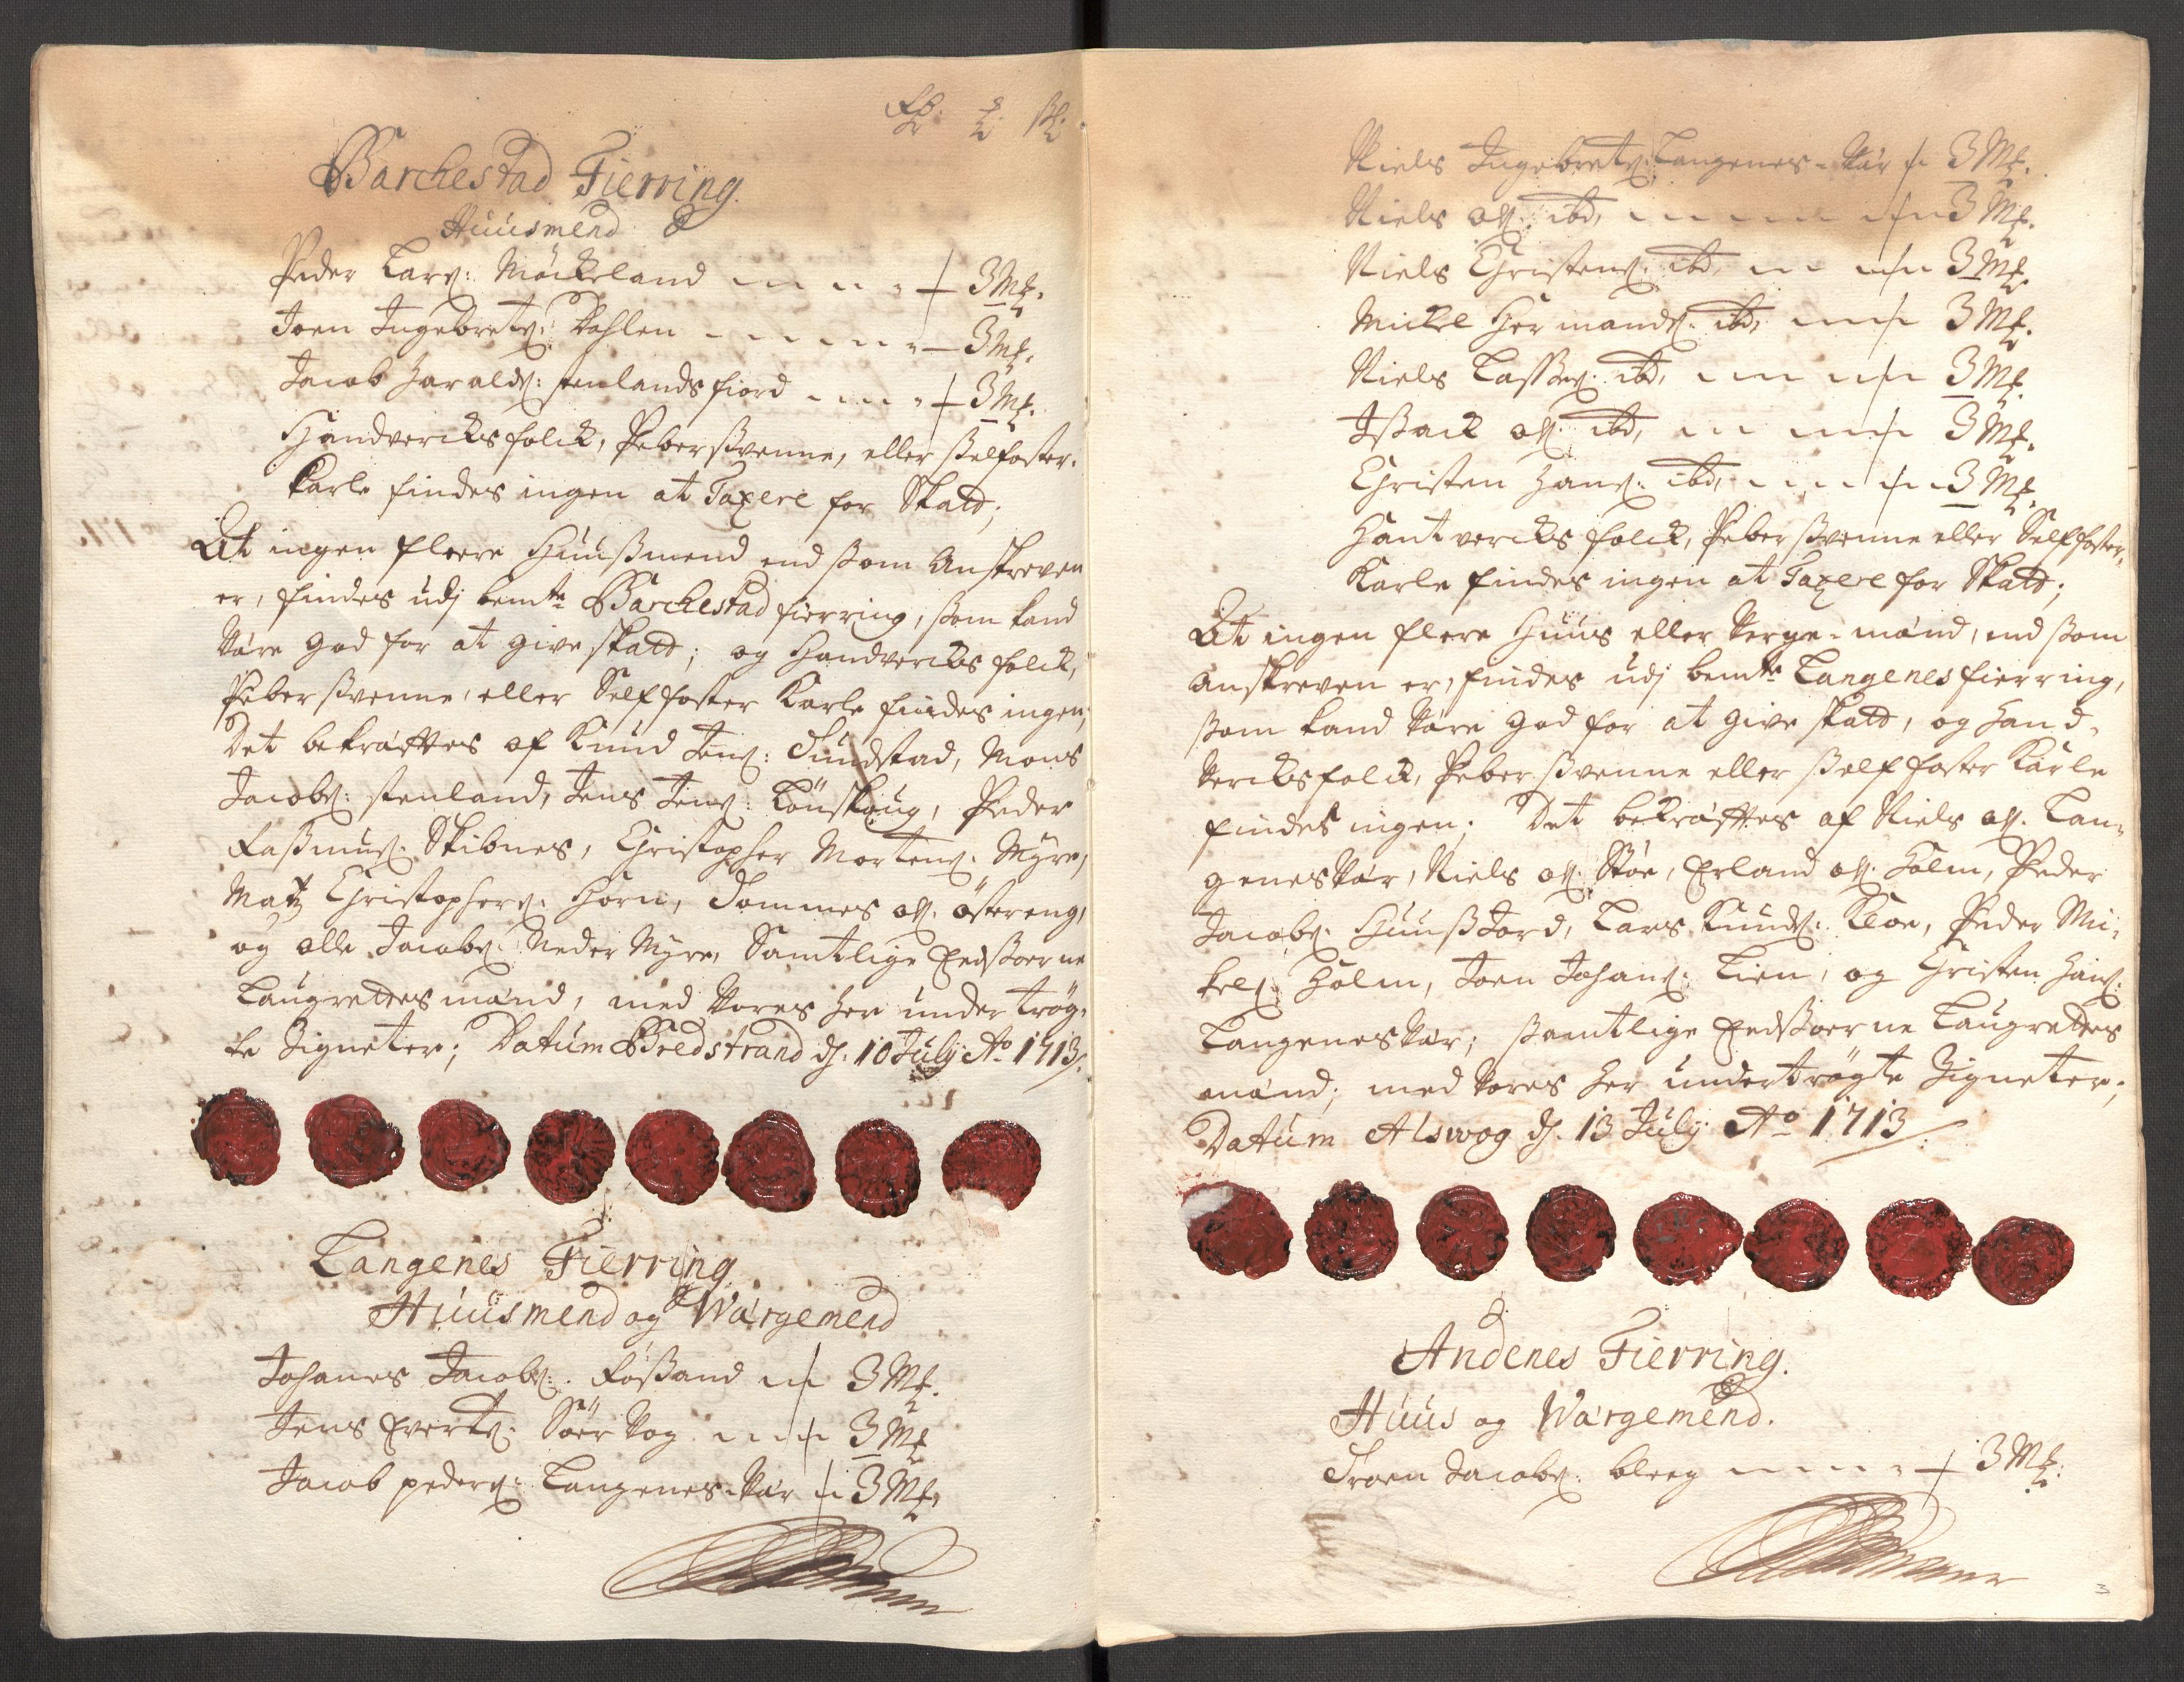 Barchestad Fierring.
Huusmend
Peder Lars: Möckeland 3 Mk.
Joen Ingebrets: Dahlen 3 Mk.
Jacob Haralds: stenlandsfiord 3 Mk.
Handvercksfolck, Pebersvenne, eller selfoster-
karle findes ingen at Taxere for Skatt;
At ingen fleere Huusmend end som Anskreven
er, findes udj bemte Barchestad fierring, som kand
være god for at give skatt; og Handvercks folck,
Pebersvenne, eller Selffoster Karle findes ingen,
Det bekræftes af Knud Jens: Sundstad, Mons
Jacobs: stenland, Jens Jens: Lönskoug, Peder
Rasmus. Skibnes, Christopher Mortens. Myre,
Matz Christophers. Horn, Tommes Ols. östereng,
og Olle Jacobs. Neder Myre, Samtlige Eedsoerne
Laugrettesmænd, med Vores her under tröge-
te Signeter; Datum Bredstrand d. 10 July Ao 1713.
Langenes Fierring
Huusmend og Wærgemend
Johanes Jacobs: Fösand 3 Mk.
Jens Everts. Söer Vog 3 Mk
Jacob peders: Langenes-Vær 3 Mk.
Niels Ingebrets: Langenes-Vær 3 Mk.
Niels Ols. ibd, 3 Mk.
Niels Christens. ibd, 3 Mk.
Mickel Hermands. ibd, 3 Mk.
Niels Lasses. ibd, 3 Mk.
Isack Ols. ibd, 3 Mk.
Christen Hans. ibd, 3 Mk.
Hantvercks folck, Pebersvenne eller Selffoster-
Karle findes ingen at Taxere for Skatt;
At ingen flere Huus eller Verge-mænd, end som
anskreven er, findes udj bemte Langenes fierring,
som kand være god for at give skatt, og Hand-
vercksfolck, Pebersvenne eller self foster Karle
findes ingen. Det bekræftes af Niels Ols. Lan-
genesvær, Niels Ols. Stöe, Erland Ols. Holm, Peder
Jacobs. Huusjord, Lars Knuds. Kloe, Peder Mi-
kels. Holm, Joen Johans: Lien, og Christen Hans:
Langenesvær; samtlige Eedsoerne Laugrettes
mænd; med vores her undertrögte Signeter;
Datum Alsvog d. 13 July Ao 1713
Andenes Fierring.
Huus og Wærgemend.
Troen Jacobs. bleeg 3 Mk.
3